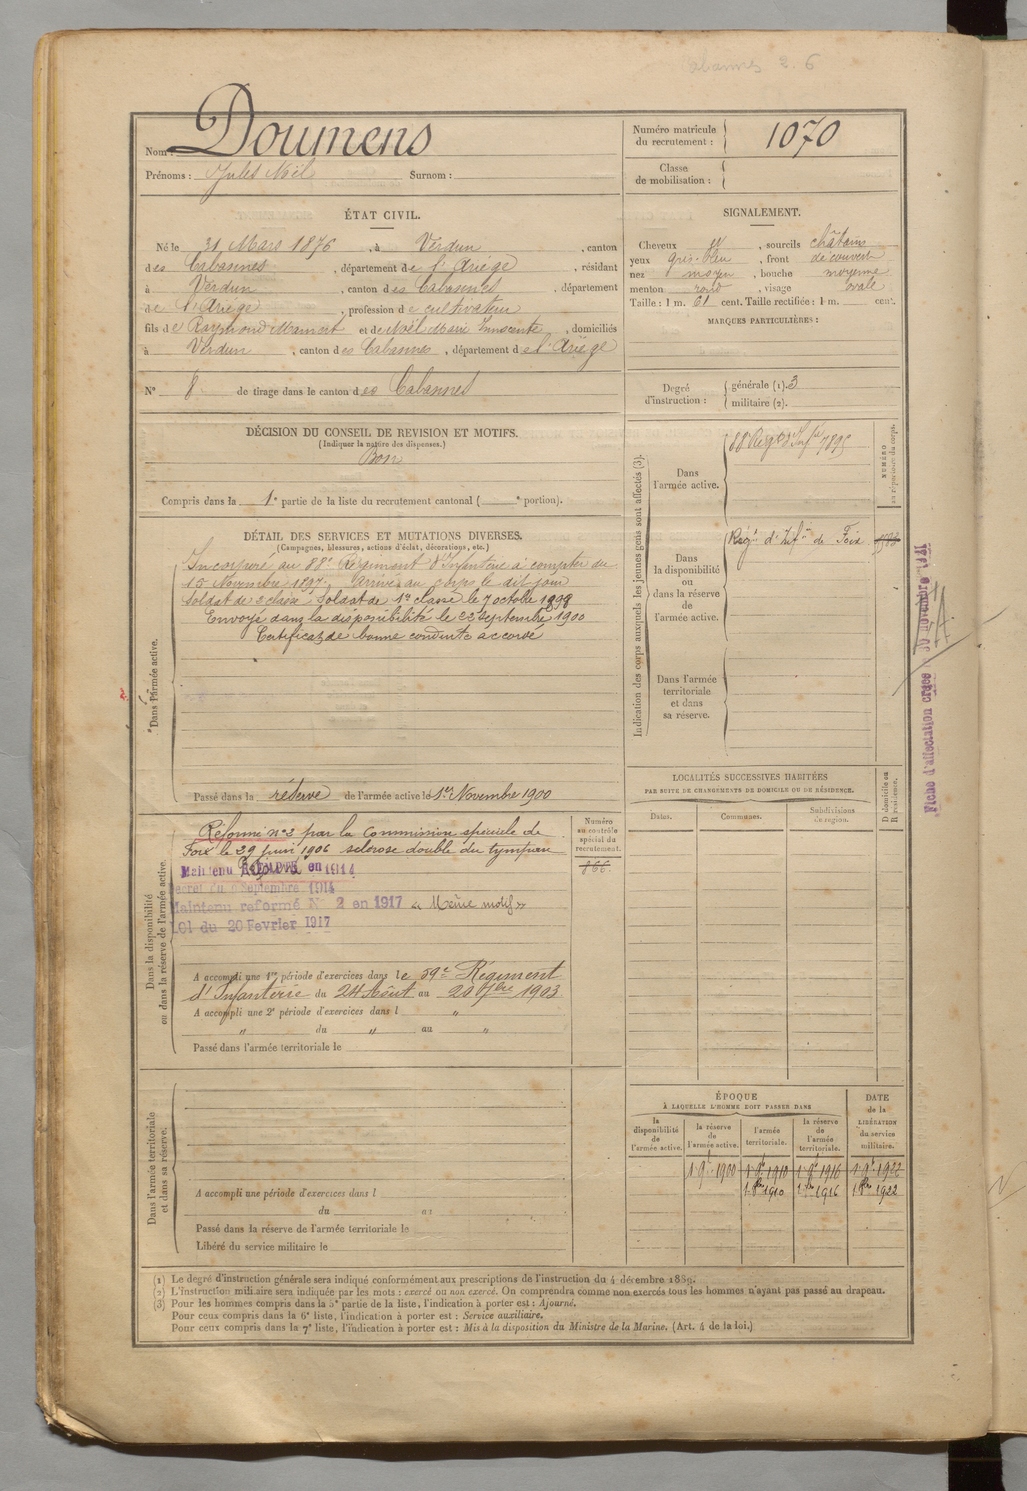 Cabannes 2. 6
Nom : Doumens
Prénoms : Jules Noël Surnom :
Numéro matricule
du recrutement :
1070
Classe
de mobilisation :
ÉTAT CIVIL.
Né le 31 Mars 1876, à Verdun, canton
des Cabannes, département de l'Ariège, résidant
à Verdun, canton des Cabannes, département
de l'Ariège, profession de cultivateur
fils de Raymond Mamert et de Noël Marie Innocente, domiciliés
à Verdun, canton des Cabannes, département de l'Ariège
N° 8 de tirage dans le canton des Cabannes
SIGNALEMENT.
Cheveux et, sourcils châtains
yeux gris-bleu, front découvert
nez moyen, bouche moyenne
menton rond, visage ovale
Taille : 1 m. 61 cent. Taille rectifiée : 1 m. cent.
MARQUES PARTICULIÈRES :
Degré
d'instruction :
générale (1). 3
militaire (2).
DÉCISION DU CONSEIL DE REVISION ET MOTIFS.
(Indiquer la nature des dispenses.)
Bon
Compris dans la 1e partie de la liste du recrutement cantonal ( e portion).
DÉTAIL DES SERVICES ET MUTATIONS DIVERSES.
(Campagnes, blessures, actions d'éclat, décorations, etc.)
Dans l'armée active.
Incorporé au 88e Régiment d'Infanterie à compter du
15 Novembre 1897. Arrivé au corps le dit jour
Soldat de 2e classe Soldat de 1re classe le 7 octobre 1899
Envoyé dans la disponibilité le 22 septembre 1900
Certificat de bonne conduite accordé
Passé dans la réserve de l'armée active le 1er Novembre 1900
Indication des corps auxquels les jeunes gens sont affectés (3).
Dans
l'armée active.
88e Régt d'Infie
NUMÉRO
au répertoire du corps.
Dans
la disponibilité
ou
dans la réserve
de
l'armée active.
Régt d'Infie de Foix
Dans l'armée
territoriale
et dans
sa réserve.
Fiche d'affectation créée 10 novembre 1911
LOCALITÉS SUCCESSIVES HABITÉES
PAR SUITE DE CHANGEMENTS DE DOMICILE OU DE RÉSIDENCE.
Dates.
Communes.
Subdivisions
de région.
D domicile ou
R résidence.
Dans la disponibilité
ou dans la réserve de l'armée active.
Numéro
au contrôle
spécial du
recrutement.
866.
Réformé n°2 par la Commission spéciale de
Foix le 29 juin 1906 sclérose double du tympan
Maintenu en 1914
Décret du 9 Septembre 1914
Maintenu reformé N° 2 en 1917 « Même motif »
Loi du 20 Fevrier 1917
A accompli une 1re période d'exercices dans le 59e Régiment
d'Infanterie du 24 Août au 20 7bre 1903
A accompli une 2e période d'exercices dans l "
" du " au "
Passé dans l'armée territoriale le
Dans l'armée territoriale
et dans sa réserve.
A accompli une période d'exercices dans l
du au
Passé dans la réserve de l'armée territoriale le
Libéré du service militaire le
ÉPOQUE
À LAQUELLE L'HOMME DOIT PASSER DANS
DATE
de la
LIBÉRATION
du service
militaire.
la
disponibilité
de
l'armée active.
la réserve
de
l'armée active.
l'armée
territoriale.
la réserve
de
l'armée
territoriale.
1 9bre 1900 1 9bre 1910 1 9bre 1916 1 9bre 1922
1 8bre 1910 1 8bre 1916 1 8bre 1922
(1) Le degré d'instruction générale sera indiqué conformément aux prescriptions de l'instruction du 4 décembre 1889.
(2) L'instruction militaire sera indiquée par les mots : exercé ou non exercé. On comprendra comme non exercés tous les hommes n'ayant pas passé au drapeau.
(3) Pour les hommes compris dans la 5e partie de la liste, l'indication à porter est : Ajourné.
Pour ceux compris dans la 6e liste, l'indication à porter est : Service auxiliaire.
Pour ceux compris dans la 7e liste, l'indication à porter est : Mis à la disposition du Ministre de la Marine. (Art. 4 de la loi.)